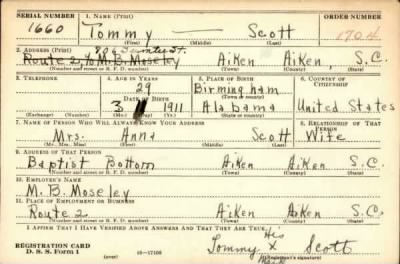 SERIAL NUMBER 1. NAME (Print) ORDER NUMBER
1660 Tommy — Scott 1704
(First) (Middle) (Last)
2. ADDRESS (Print)
Route 2, % M.B. Moseley Aiken Aiken, S.C.
(Number and street or R. F. D. number) (Town) (County) (State)
3. TELEPHONE 4. AGE IN YEARS 5. PLACE OF BIRTH 6. COUNTRY OF CITIZENSHIP
29 Birmingham
DATE OF BIRTH (Town or county)
3 1911 Alabama United States
(Exchange) (Number) (Mo.) (Day) (Yr.) (State or country)
7. NAME OF PERSON WHO WILL ALWAYS KNOW YOUR ADDRESS 8. RELATIONSHIP OF THAT PERSON
Mrs. Anna Scott Wife
(Mr., Mrs., Miss) (First) (Middle) (Last)
9. ADDRESS OF THAT PERSON
Baptist Bottom Aiken Aiken S.C.
(Number and street or R. F. D. number) (Town) (County) (State)
10. EMPLOYER'S NAME
M.B. Moseley
11. PLACE OF EMPLOYMENT OR BUSINESS
Route 2 Aiken Aiken S.C.
(Number and street or R. F. D. number) (Town) (County) (State)
I AFFIRM THAT I HAVE VERIFIED ABOVE ANSWERS AND THAT THEY ARE TRUE.
His
REGISTRATION CARD Tommy X Scott
D. S. S. Form 1 (over) 16—17105 Mark (Registrant's signature)